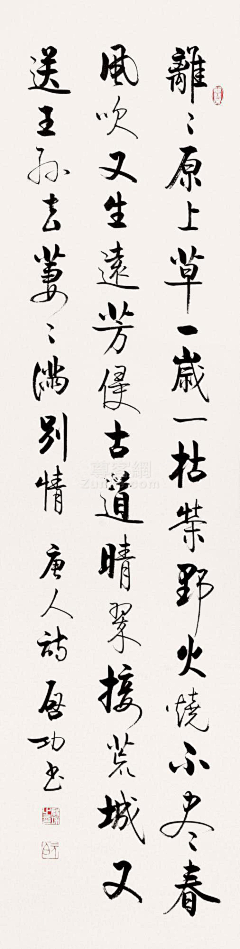 離〻原上草一歲一枯榮野火燒不尽春
風吹又生遠芳侵古道晴翠接荒城又
送王孫去萋〻滿別情 唐人詩 啟功書